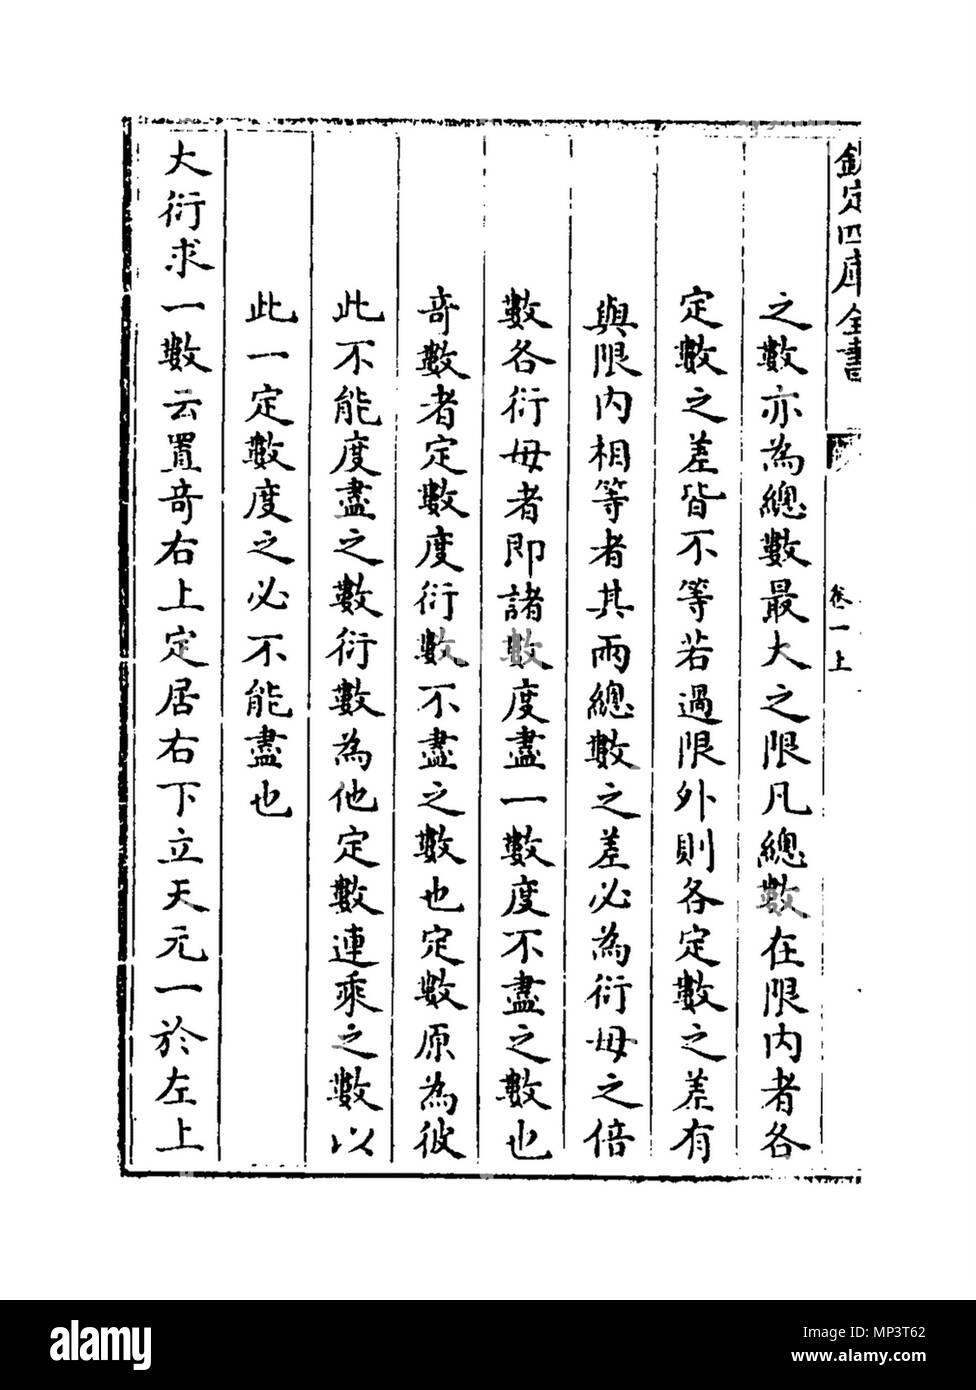 欽定四庫全書
卷一上
之數亦為總數最大之限凡總數在限内者各
定數之差皆不等若過限外則各定數之差有
與限内相等者其兩總數之差必為衍母之倍
數各衍母者即諸數度盡一數度不盡之數也
竒數者定數度衍數不盡之數也定數原為彼
此不能度盡之數衍數為他定數連乘之數以
此一定數度之必不能盡也
大衍求一數云置竒右上定居右下立天元一於左上
alamy
Image ID: MP3T62
www.alamy.com